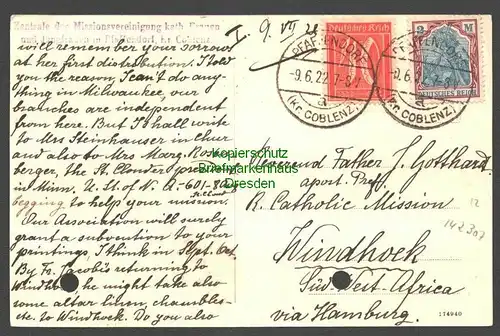 Zentrale der Missionsvereinigung kath. Frauen
und Jungfrauen in Pfaffendorf, kr Coblenz.
will remember your sorrows
at her first distribution. I told
you the reason, I can't do any-
thing in Milwaukee, our
branches are independent
from here. But I shall write
to Mrs Steinhauser in Chur
and also to Mrs Marg. Rosen
berger, the St. Clouder
in Minn. U. St. of N. A.
begging to help your mission.
Our Association will surely
grant a subvention to your
printings I think in Sept. Oct.
By Fr. Jacobi's returning to
Windh he might take also
some altar linen, chaubles
etc. to Windock. Do you also
9. VI 22
Deutsches Reich
2 M
DEUTSCHES REICH
PFAFFENDORF
-9.6.22.7-8
a
(Kr. COBLENZ)
PFAFFENDORF
(Kr. COBLENZ)
Reverend Father J. Gotthardt
apost. Pref.
R. Catholic Mission
Windhoek
Süd-West-Africa
via Hamburg.
12
142307
174940
Kopierschutz
Briefmarkenhaus
Dresden